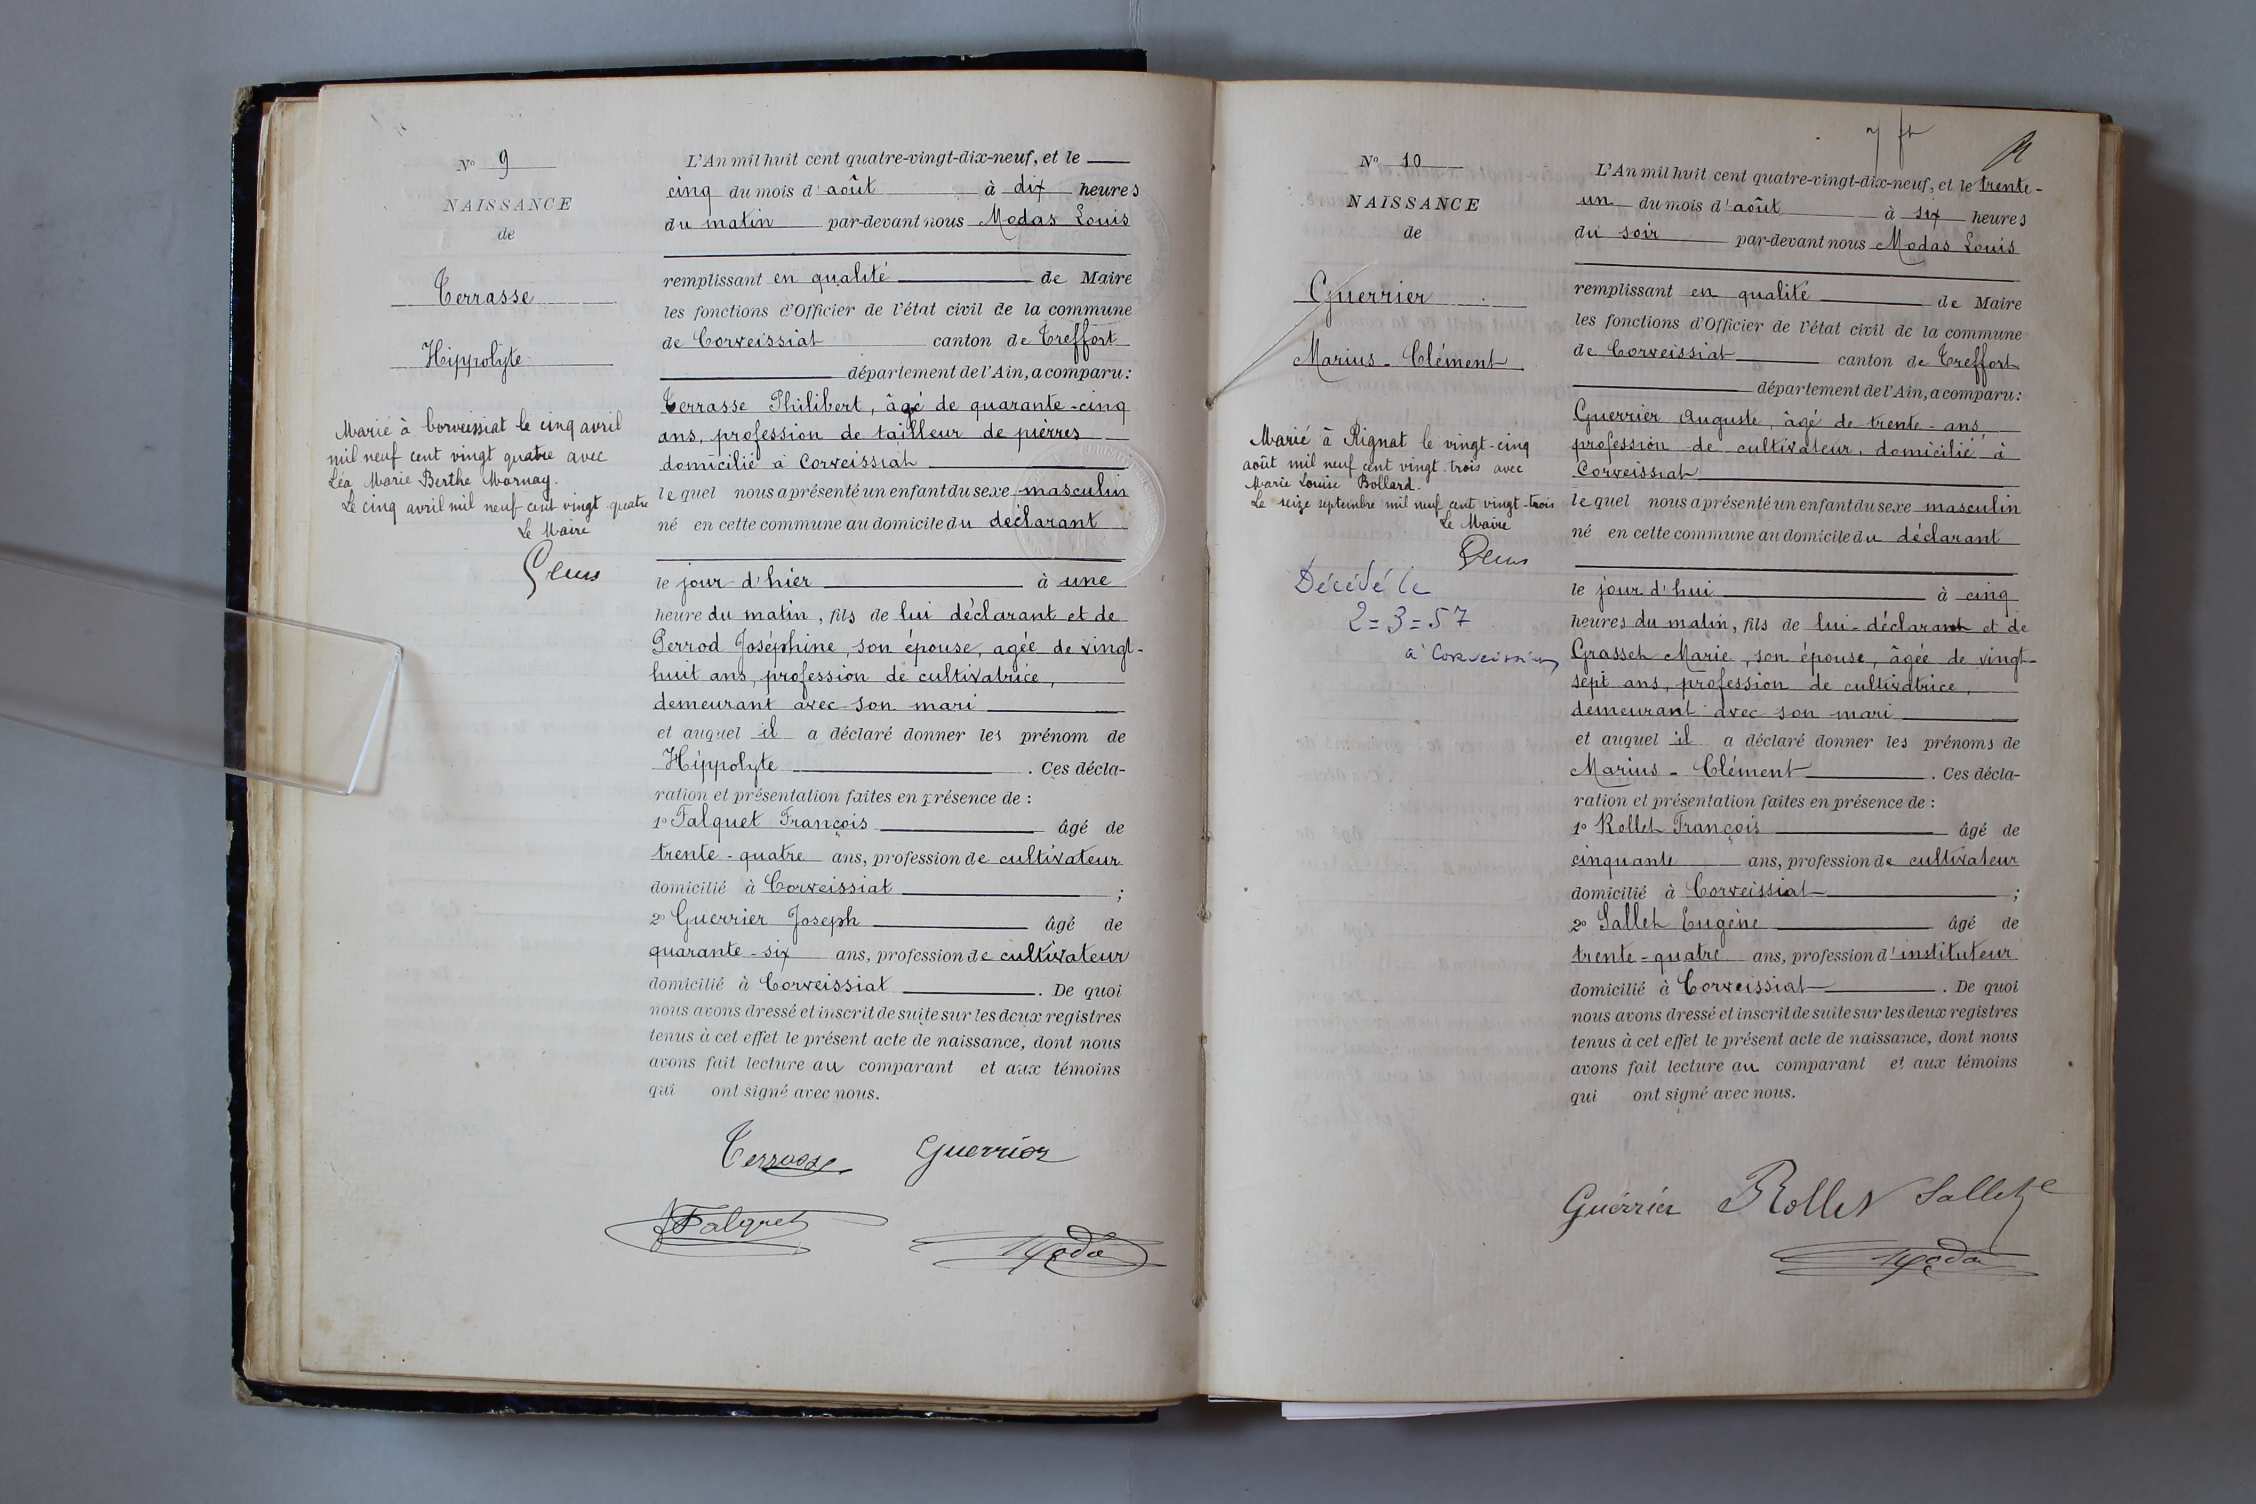 N° 9
NAISSANCE
de
Terrasse
Hippolyte
Marié à Corveissiat le cinq avril
mil neuf cent vingt quatre avec
Léa Marie Berthe Mornay.
Le cinq avril mil neuf cent vingt quatre
Le Maire
L'An mil huit cent quatre-vingt-dix-neuf, et le
cinq du mois d'août à dix heures
du matin par-devant nous Modas Louis
remplissant en qualité de Maire
les fonctions d'Officier de l'état civil de la commune
de Corveissiat canton de Treffort
département de l'Ain, a comparu :
Terrasse Philibert, âgé de quarante-cinq
ans, profession de tailleur de pierres
domicilié à Corveissiat
lequel nous a présenté un enfant du sexe masculin
né en cette commune au domicile du déclarant
le jour d'hier à une
heure du matin, fils de lui déclarant et de
Perrod Joséphine, son épouse, agée de vingt-
huit ans, profession de cultivatrice,
demeurant avec son mari
et auquel il a déclaré donner les prénom de
Hippolyte. Ces décla-
ration et présentation faites en présence de :
1° Falquet François âgé de
trente-quatre ans, profession de cultivateur
domicilié à Corveissiat ;
2° Guerrier Joseph âgé de
quarante-six ans, profession de cultivateur
domicilié à Corveissiat. De quoi
nous avons dressé et inscrit de suite sur les deux registres
tenus à cet effet le présent acte de naissance, dont nous
avons fait lecture au comparant et aux témoins
qui ont signé avec nous.
Terrasse Guerrier
Falquet Modas
N° 10
NAISSANCE
de
Guerrier
Marius-Clément
Marié à Rignat le vingt-cinq
août mil neuf cent vingt-trois avec
Marie Louise Bollard.
Le seize septembre mil neuf cent vingt-trois
Le Maire
Décédé le
2=3=57
à Corveissiat
L'An mil huit cent quatre-vingt-dix-neuf, et le trente-
un du mois d'août à six heures
du soir par-devant nous Modas Louis
remplissant en qualité de Maire
les fonctions d'Officier de l'état civil de la commune
de Corveissiat canton de Treffort
département de l'Ain, a comparu :
Guerrier Auguste, âgé de trente-ans,
profession de cultivateur, domicilié à
Corveissiat
lequel nous a présenté un enfant du sexe masculin
né en cette commune au domicile du déclarant
le jour d'hui à cinq
heures du matin, fils de lui-déclarant et de
Grasset Marie, son épouse, âgée de vingt-
sept ans, profession de cultivatrice,
demeurant avec son mari
et auquel il a déclaré donner les prénoms de
Marius-Clément. Ces décla-
ration et présentation faites en présence de :
1° Rollet François âgé de
cinquante ans, profession de cultivateur
domicilié à Corveissiat ;
2° Sallet Eugène âgé de
trente-quatre ans, profession d'instituteur
domicilié à Corveissiat. De quoi
nous avons dressé et inscrit de suite sur les deux registres
tenus à cet effet le présent acte de naissance, dont nous
avons fait lecture au comparant et aux témoins
qui ont signé avec nous.
Guérrier Rollet Sallet
Modas